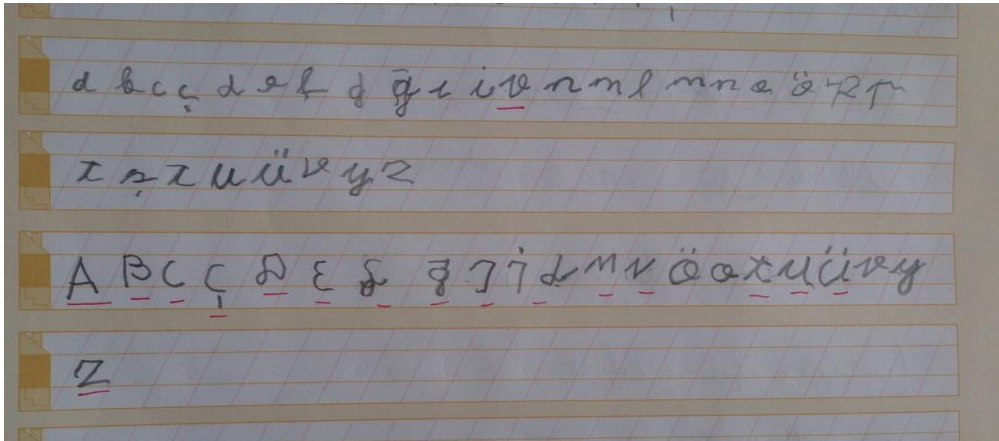 a b c ç d e f g ğ ı i v n m l m n o ö p r
t ş t u ü v y z
A B C Ç D E F Ğ I İ L M N Ö O T U Ü V Y
Z